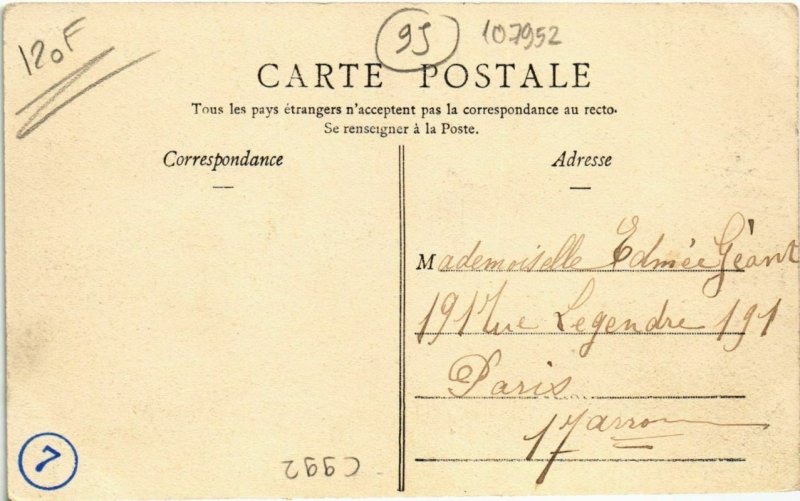 120F
95
107952
CARTE POSTALE
Tous les pays étrangers n'acceptent pas la correspondance au recto.
Se renseigner à la Poste.
Correspondance
Adresse
Mademoiselle Edmée Géant
191 rue Legendre 191
Paris
17 arron
C992
7